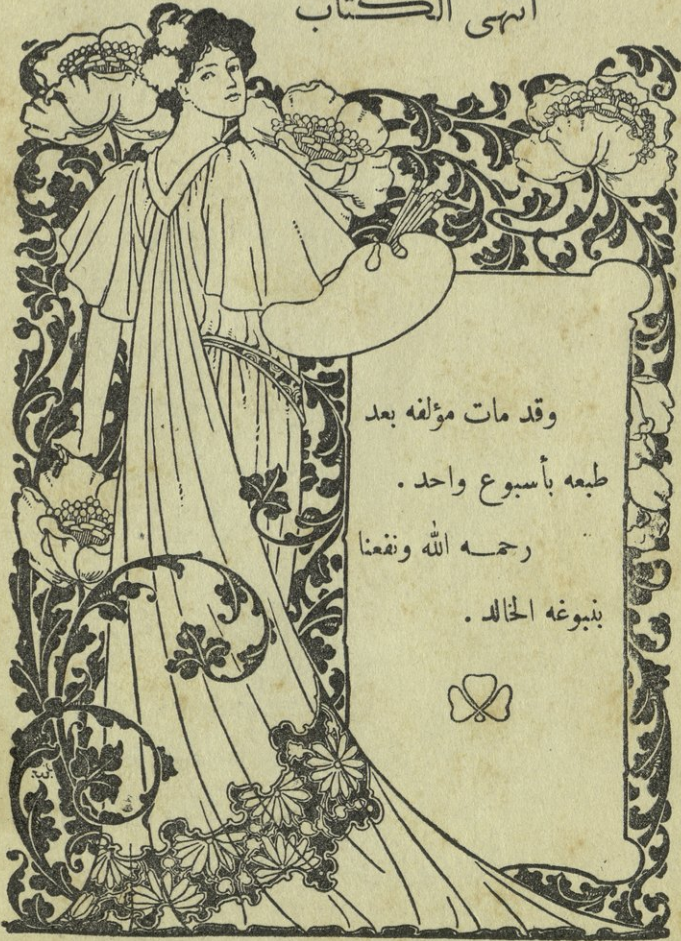 انتهى الكتاب
وقد مات مؤلفه بعد
طبعه بأسبوع واحد .
رحمه الله ونفعنا
بنبوغه الخالد .